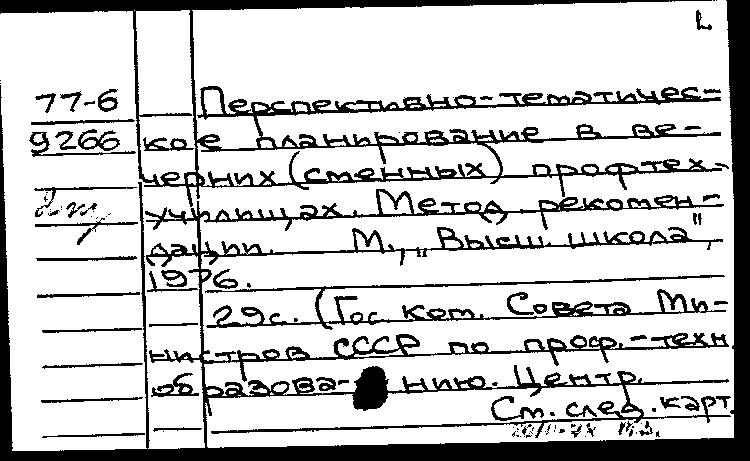 77-6 Перспективно-тематичес-
9266 кое планирование в ве-
черних (сменных) профтех-
училищах. Метод. рекомен-
дации. М., „Высш. школа",
1976.
29с. (Гос. ком. Совета Ми-
нистров СССР по проф.-техн.
образова- нию. Центр.
См. след. карт.